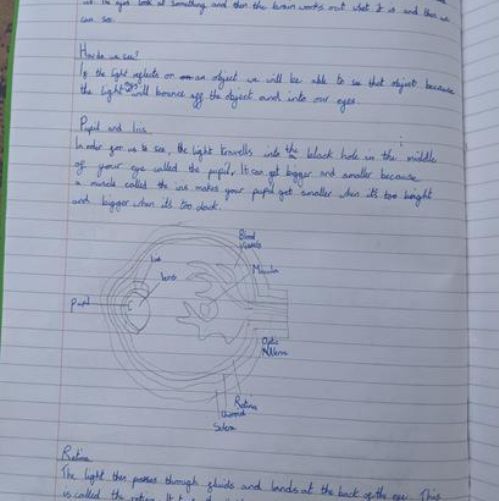 the eyes look at something and then the brain works out what it is and then we
can see.
How do we see?
If the light reflects on an object we will be able to see that object because
the light will bounce off the object and into our eyes.
Pupil and Iris
In order for us to see, the light travells into the black hole in the middle
of your eye called the pupil. It can get bigger and smaller because
a muscle called the iris makes your pupil get smaller when it's too bright
and bigger when it's too dark.
Blood
Vessels
Iris
Lens
Macula
Pupil
Optic
Nerve
Retina
Choroid
Sclera
Retina
The light then passes through fluids and lands at the back of the eye. This
is called the retina. It